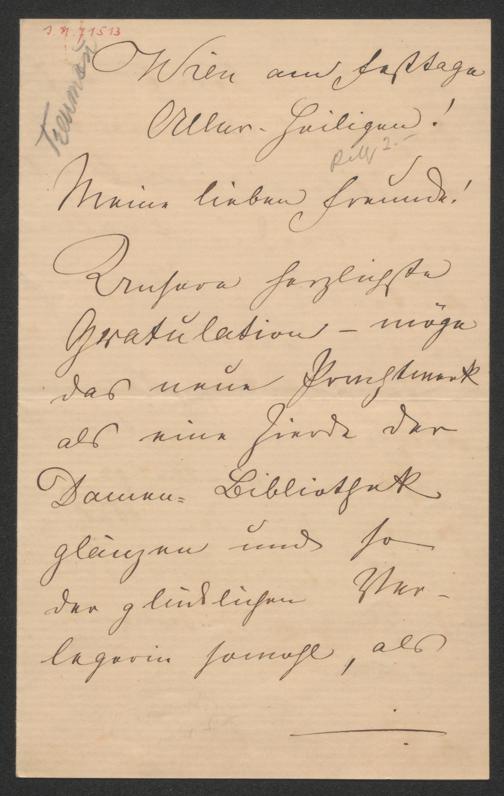 J.N. 71513
Wien am Festtage
Aller-Heiligen!
Meine lieben Freunde!
Unsere herzlichste
Gratulation – möge
das neue Prachtwerk
als eine Zierde der
Damen= Bibliothek
glänzen und so
der glücklichen Ver-
legerin sowohl, als